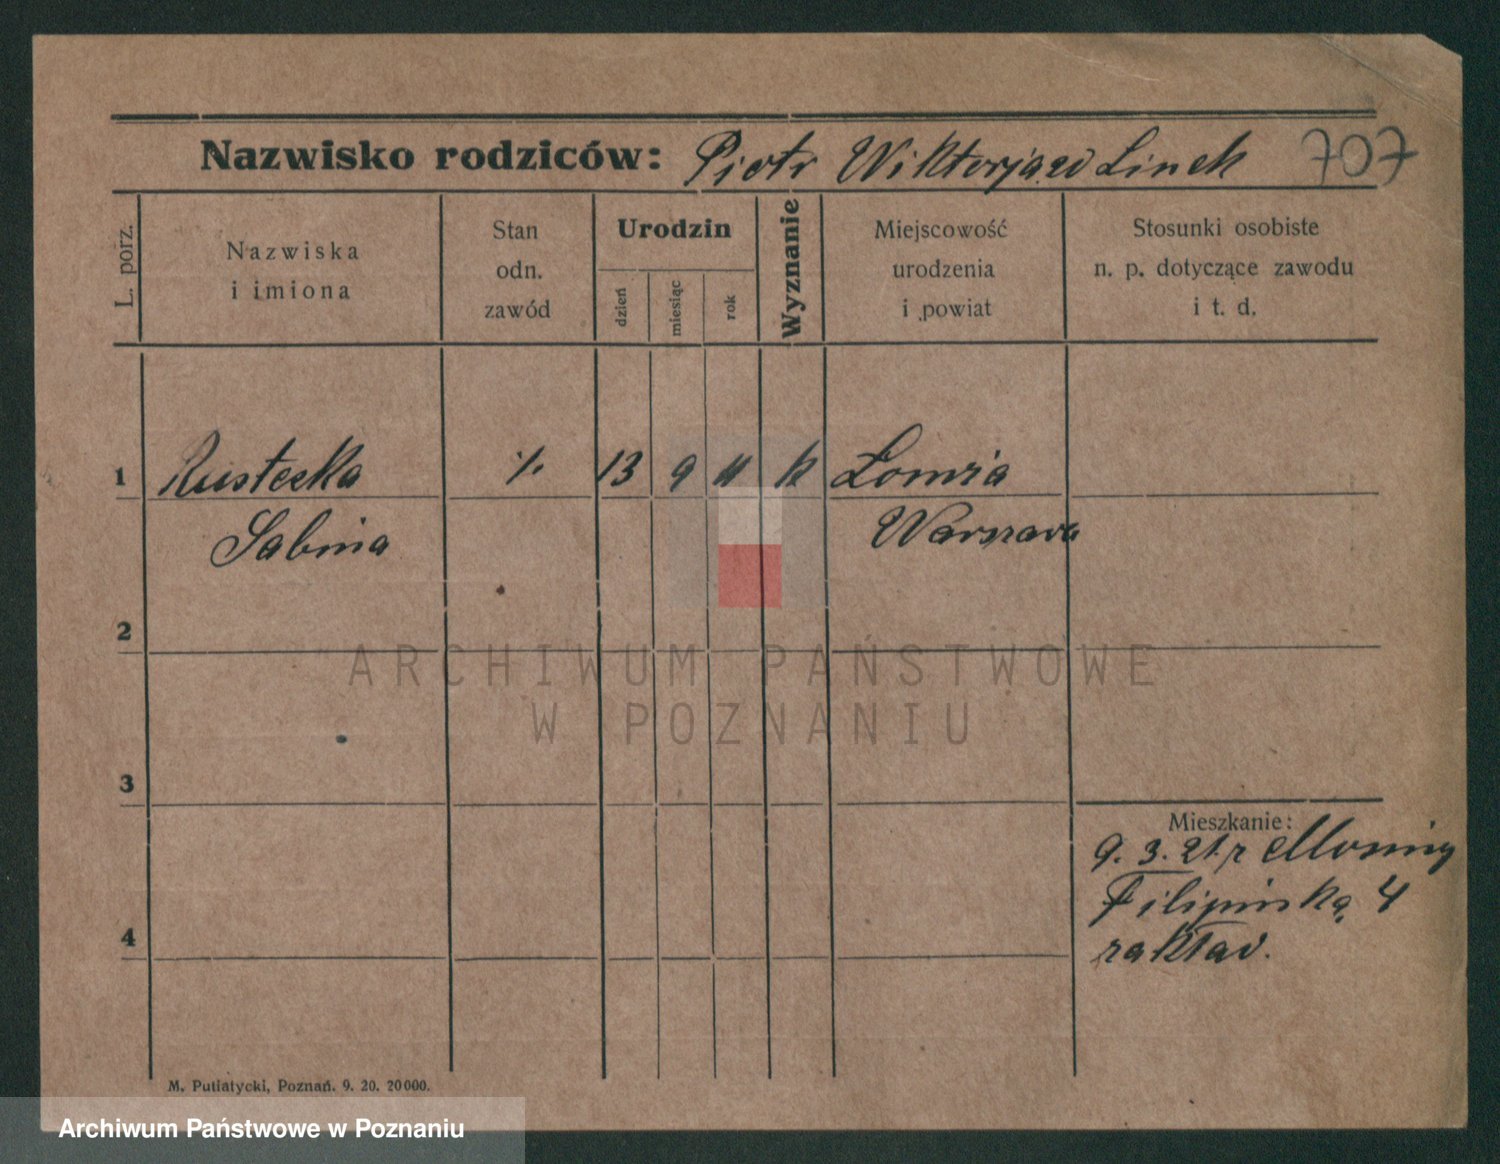 Nazwisko rodziców: Piotr Wiktorja zd Linek 707
L. porz.
Nazwiska
i imiona
Stan
odn.
zawód
Urodzin
dzień
miesiąc
rok
Wyznanie
Miejscowość
urodzenia
i powiat
Stosunki osobiste
n. p. dotyczące zawodu
i t. d.
1 Rustecka % 13 9 11 k Łomża
Sabina Warszawa
2
ARCHIWUM PAŃSTWOWE
W POZNANIU
3
Mieszkanie:
9. 3. 21. r
Filipińska 4
zakład.
4
M. Putiatycki, Poznań. 9. 20. 20000.
Archiwum Państwowe w Poznaniu